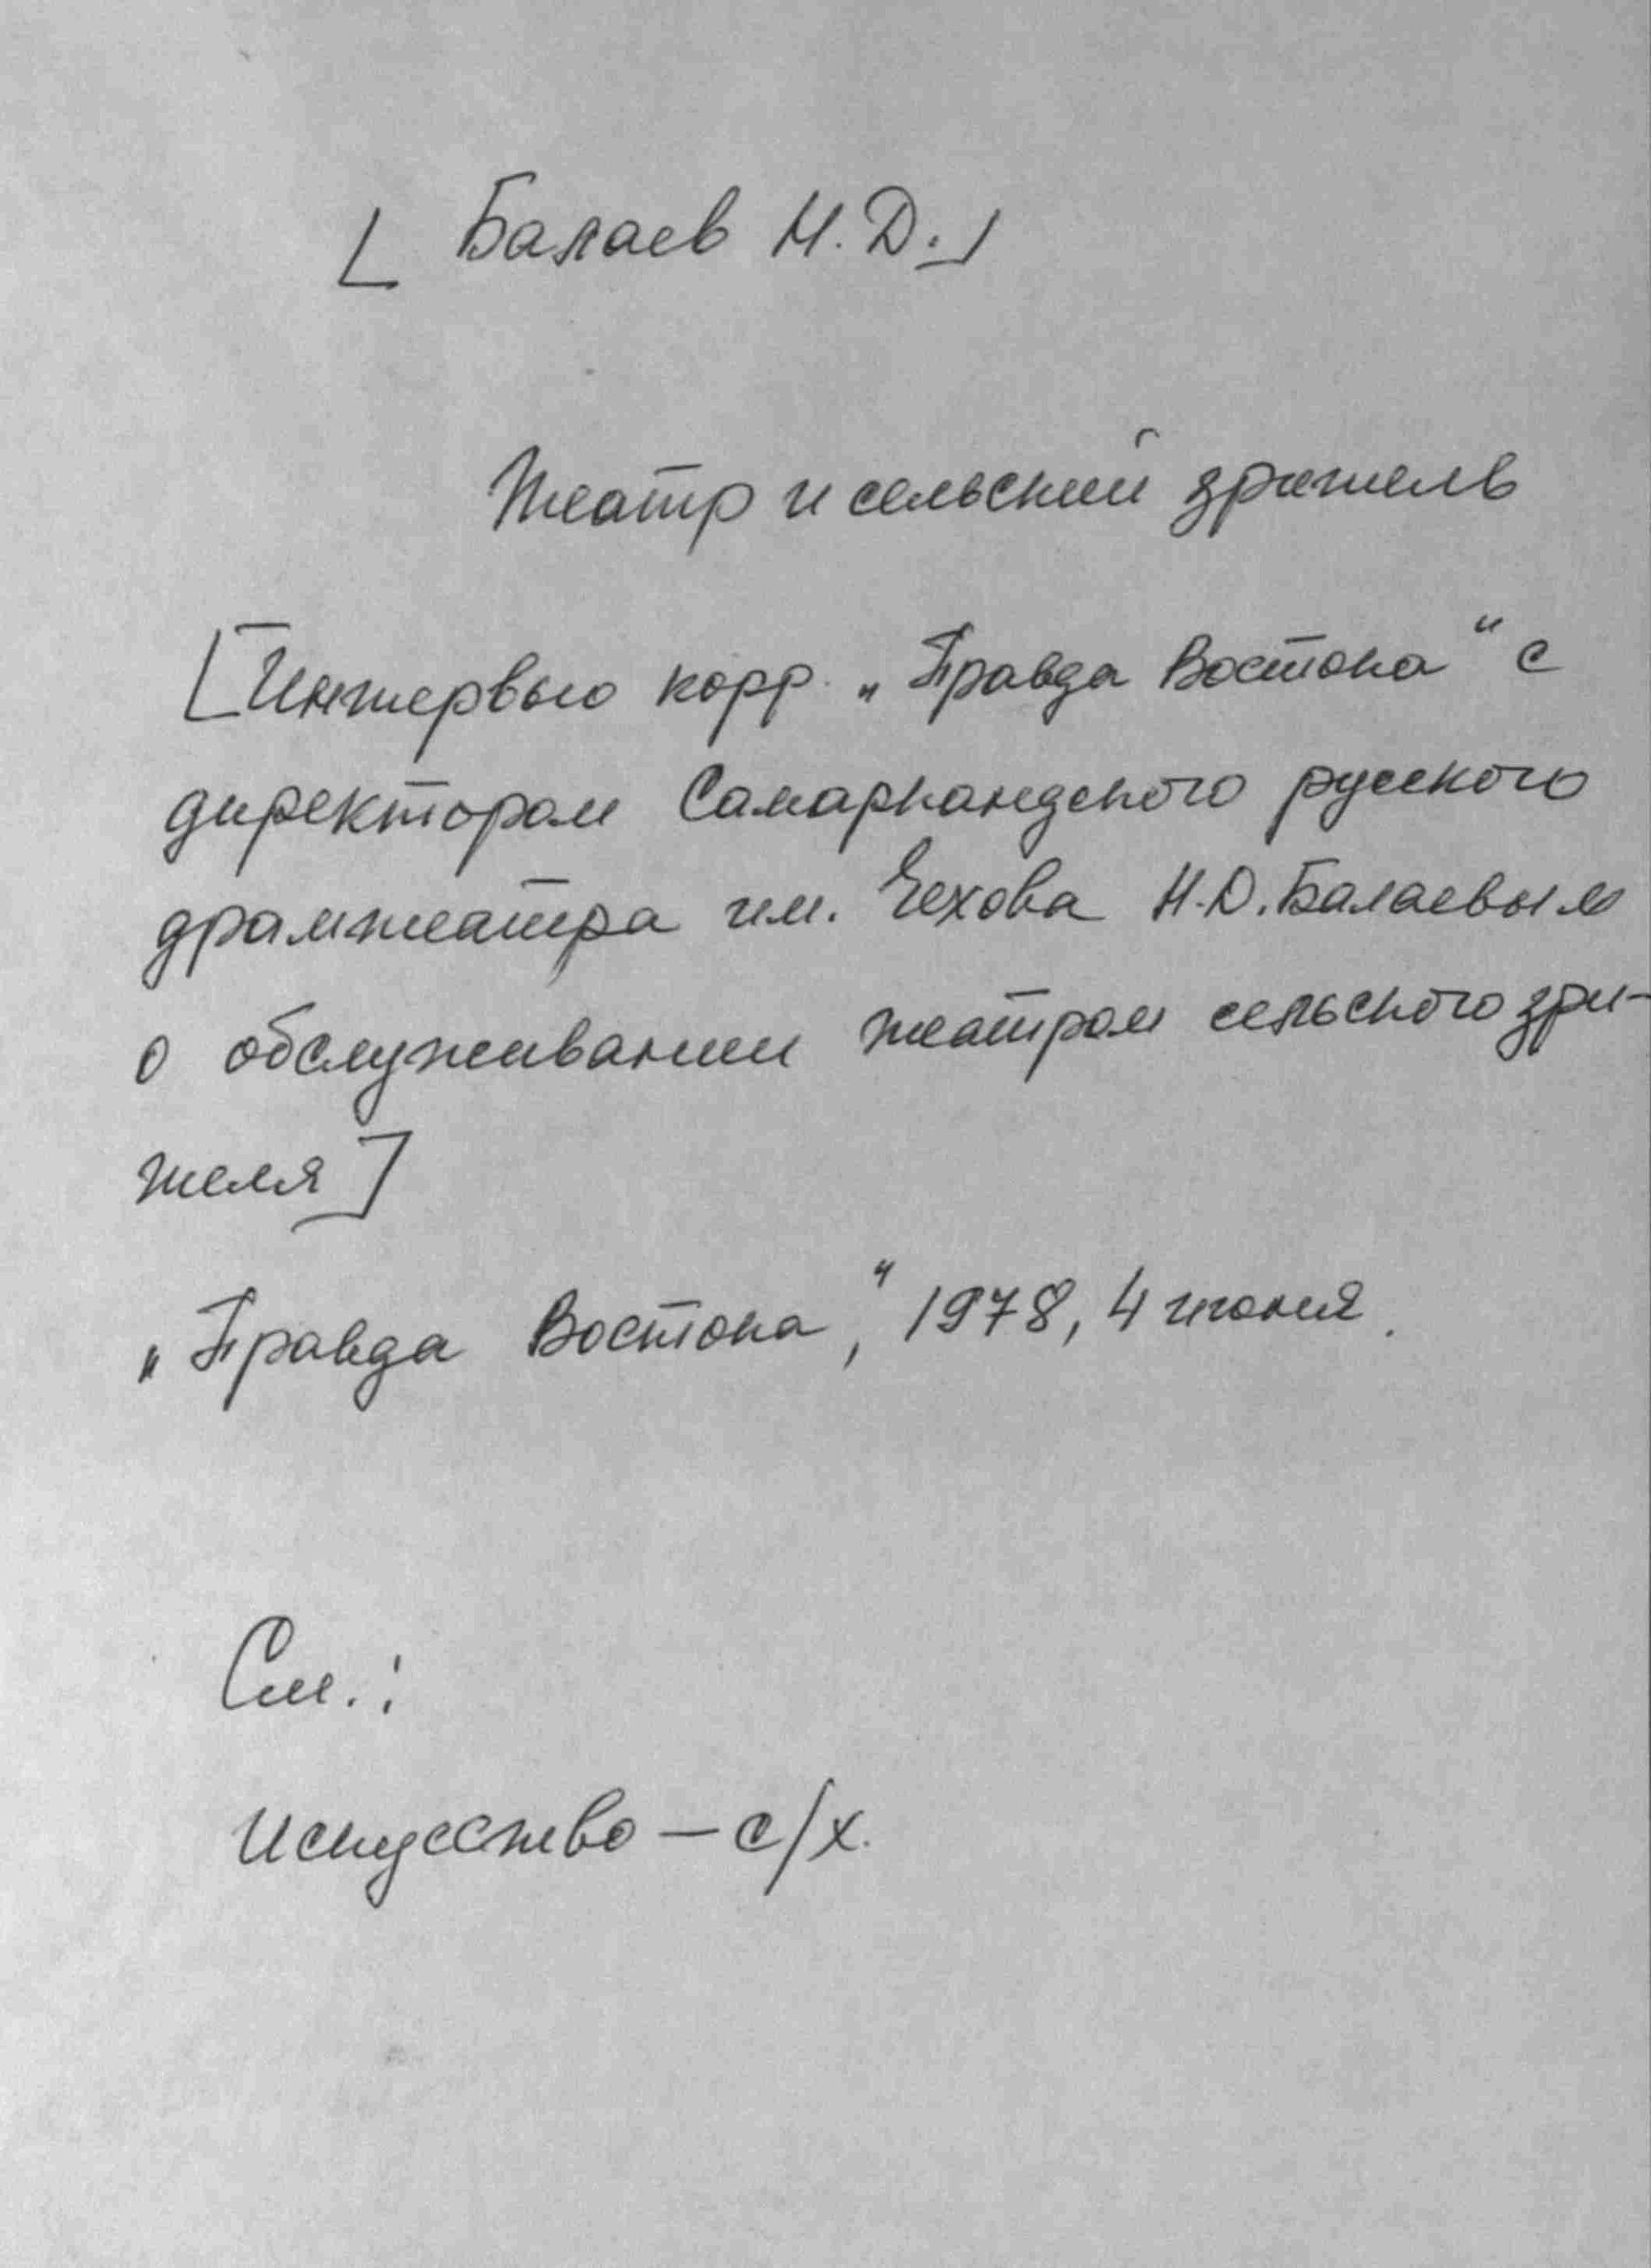 [Балаев Н.Д.]
Театр и сельский зритель
[Интервью корр. „Правда Востока“ с
директором Самаркандского русского
драмтеатра им. Чехова Н.Д. Балаевым
о обслуживании театром сельского зри-
теля]
„Правда Востока“, 1978, 4 июня.
См.:
Искусство – с/х.